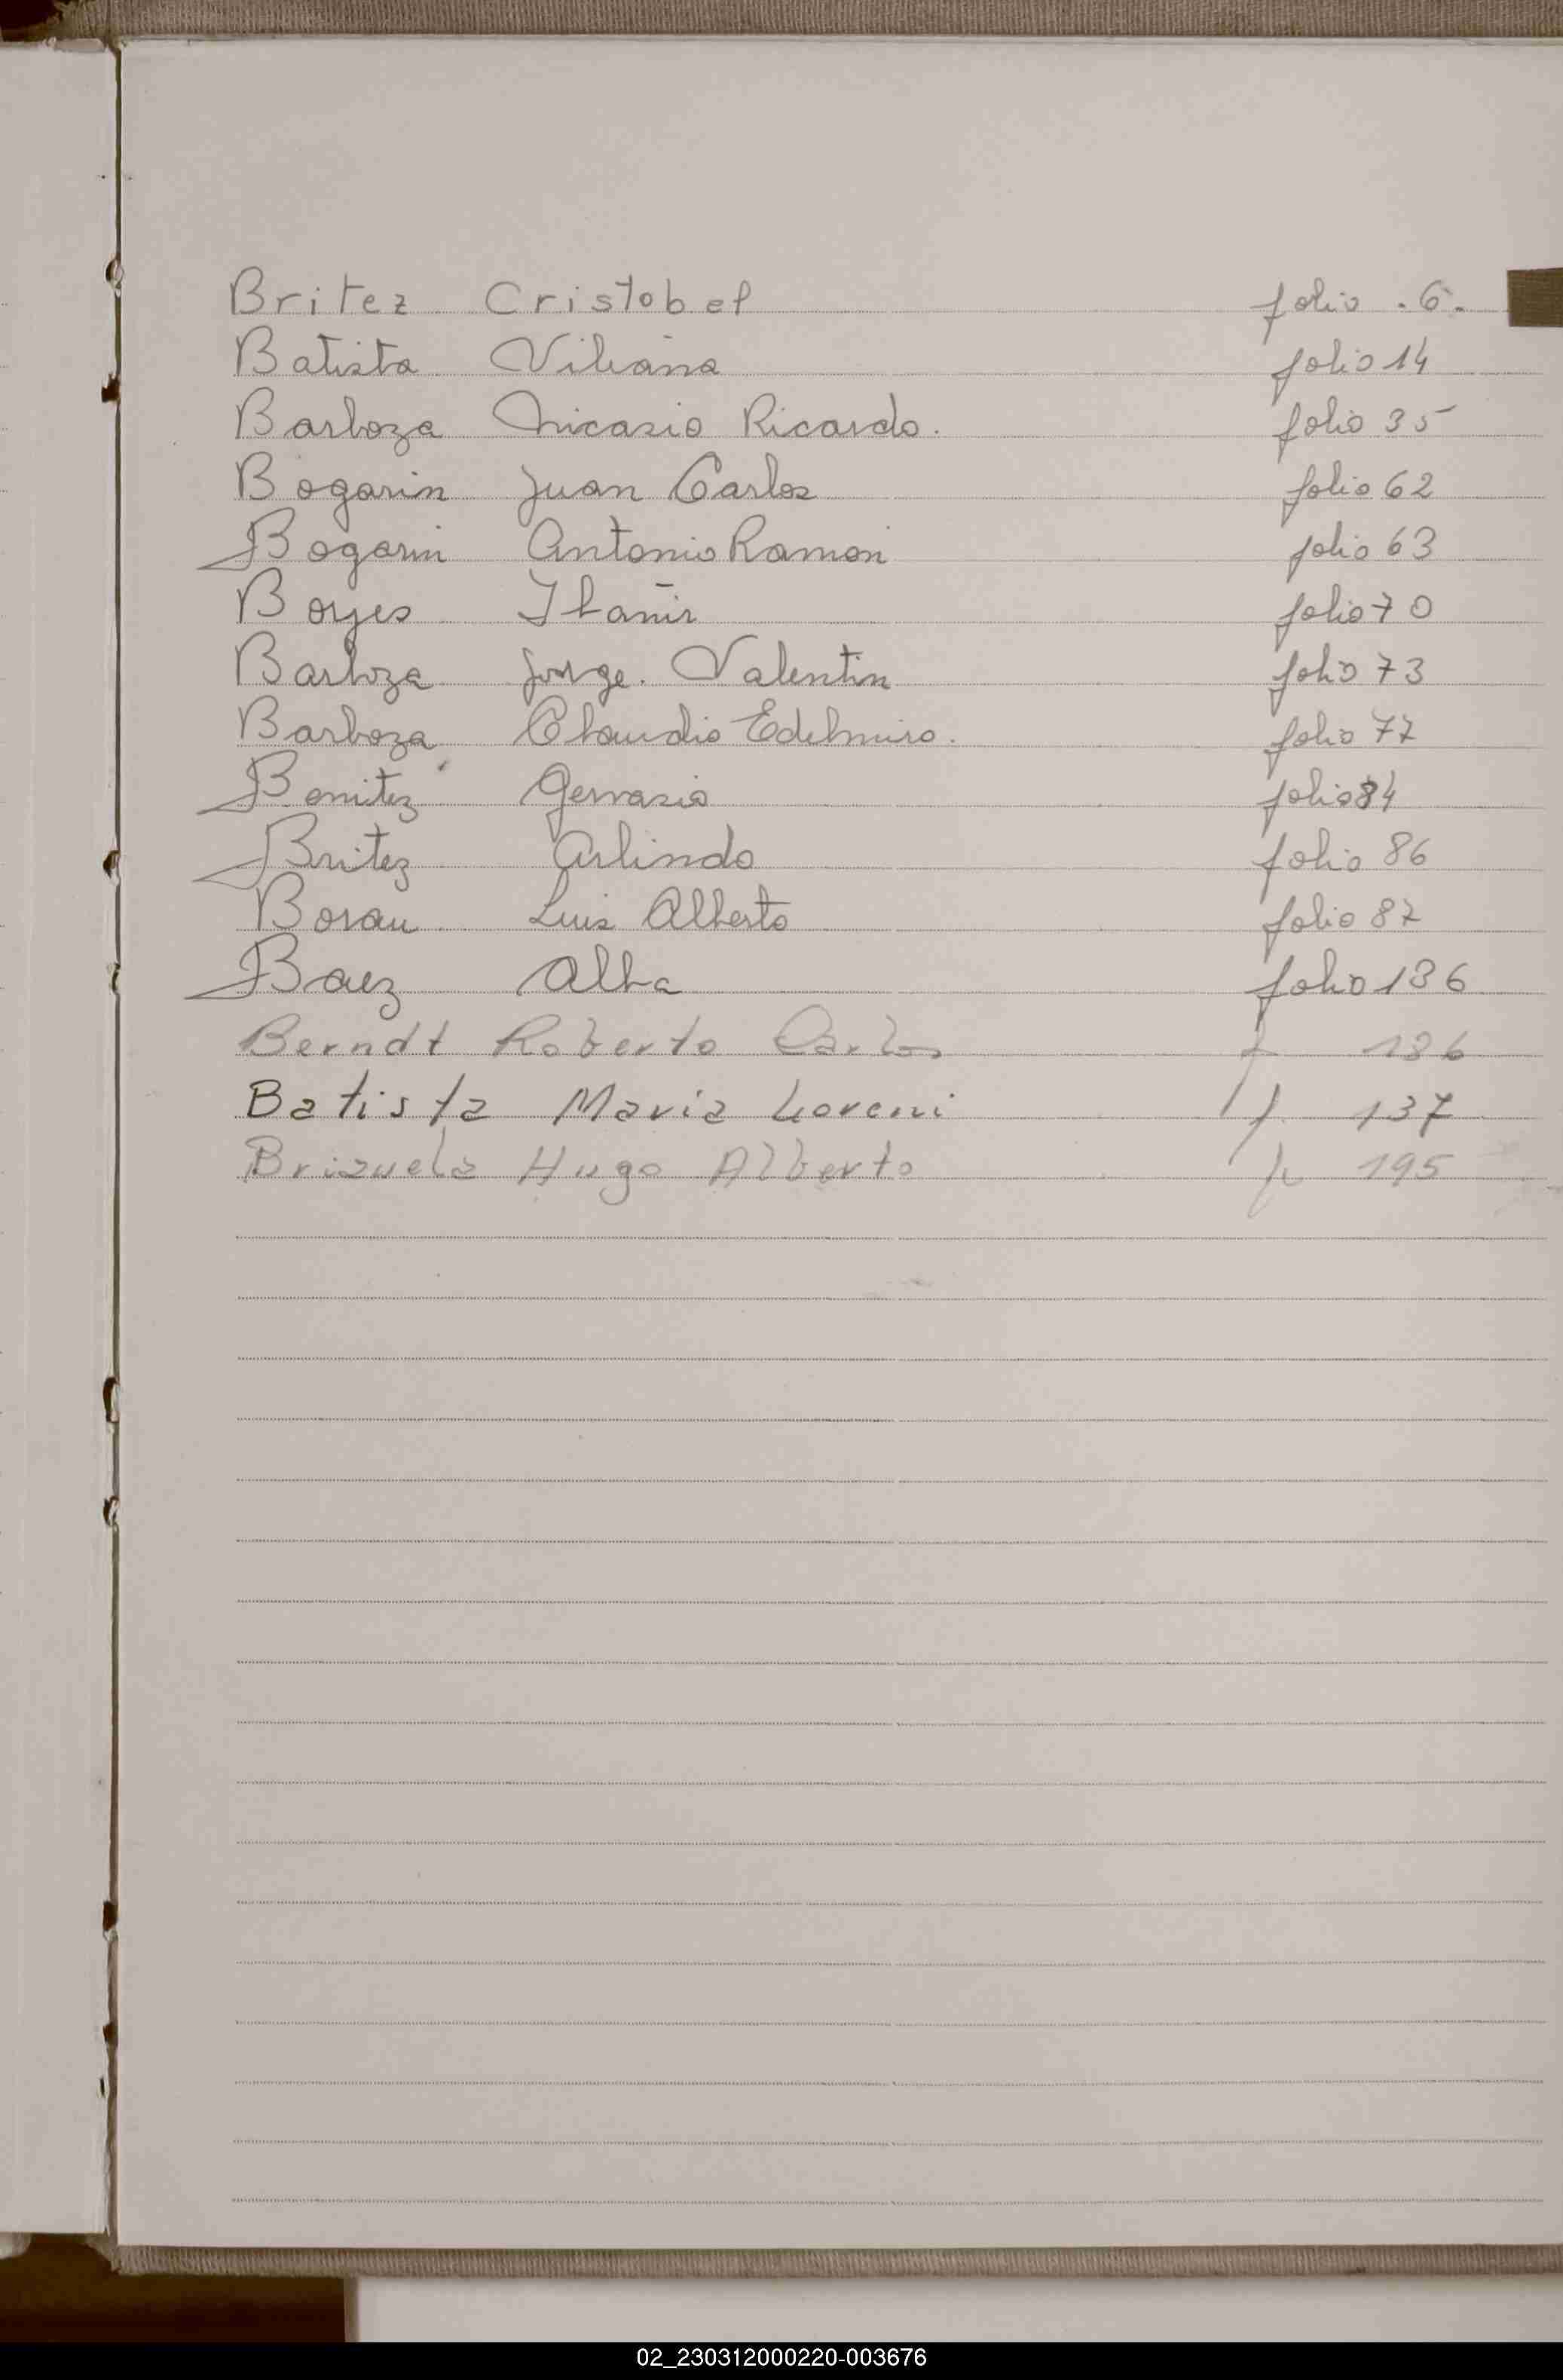 Britez Cristobal folio .6.
Batista Viliana folio 14
Barboza Nicasio Ricardo. folio 35
Bogarin Juan Carlos folio 62
Bogarin Antonio Ramon folio 63
Borges folio 70
Barboza Jorge. Valentin folio 73
Barboza Claudio Edelmiro. folio 77
Benitez Gervasio folio 84
Britez Arlindo folio 86
Borau Luis Alberto folio 87
Baez Alba folio 136
Berndt Roberto Carlos f 136
Batista Maria Loreni f. 137
Brizuela Hugo Alberto f. 195
02_230312000220-003676